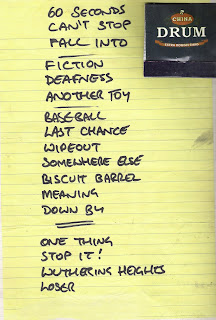 60 SECONDS
CAN'T STOP
FALL INTO
FICTION
DEAFNESS
ANOTHER TOY
BASEBALL
LAST CHANCE
WIPEOUT
SOMEWHERE ELSE
BISCUIT BARREL
MEANING
DOWN BY
ONE THING
STOP IT!
WUTHERING HEIGHTS
LOSER
CHINA
DRUM